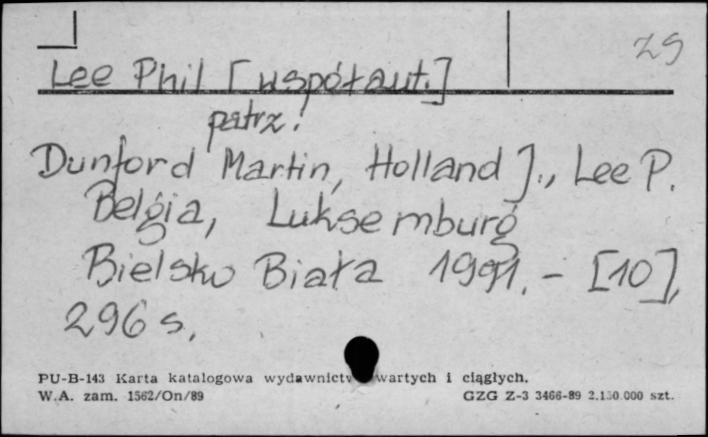 ZS
Lee Phil [współaut.]
patrz:
Dunford Martin, Holland J., Lee P.
Belgia, Luksemburg
Bielsko Biała 1991. - [10],
296 s.
PU-B-143 Karta katalogowa wydawnictw zwartych i ciągłych.
W.A. zam. 1562/On/89 GZG Z-3 3466-89 2.150.000 szt.